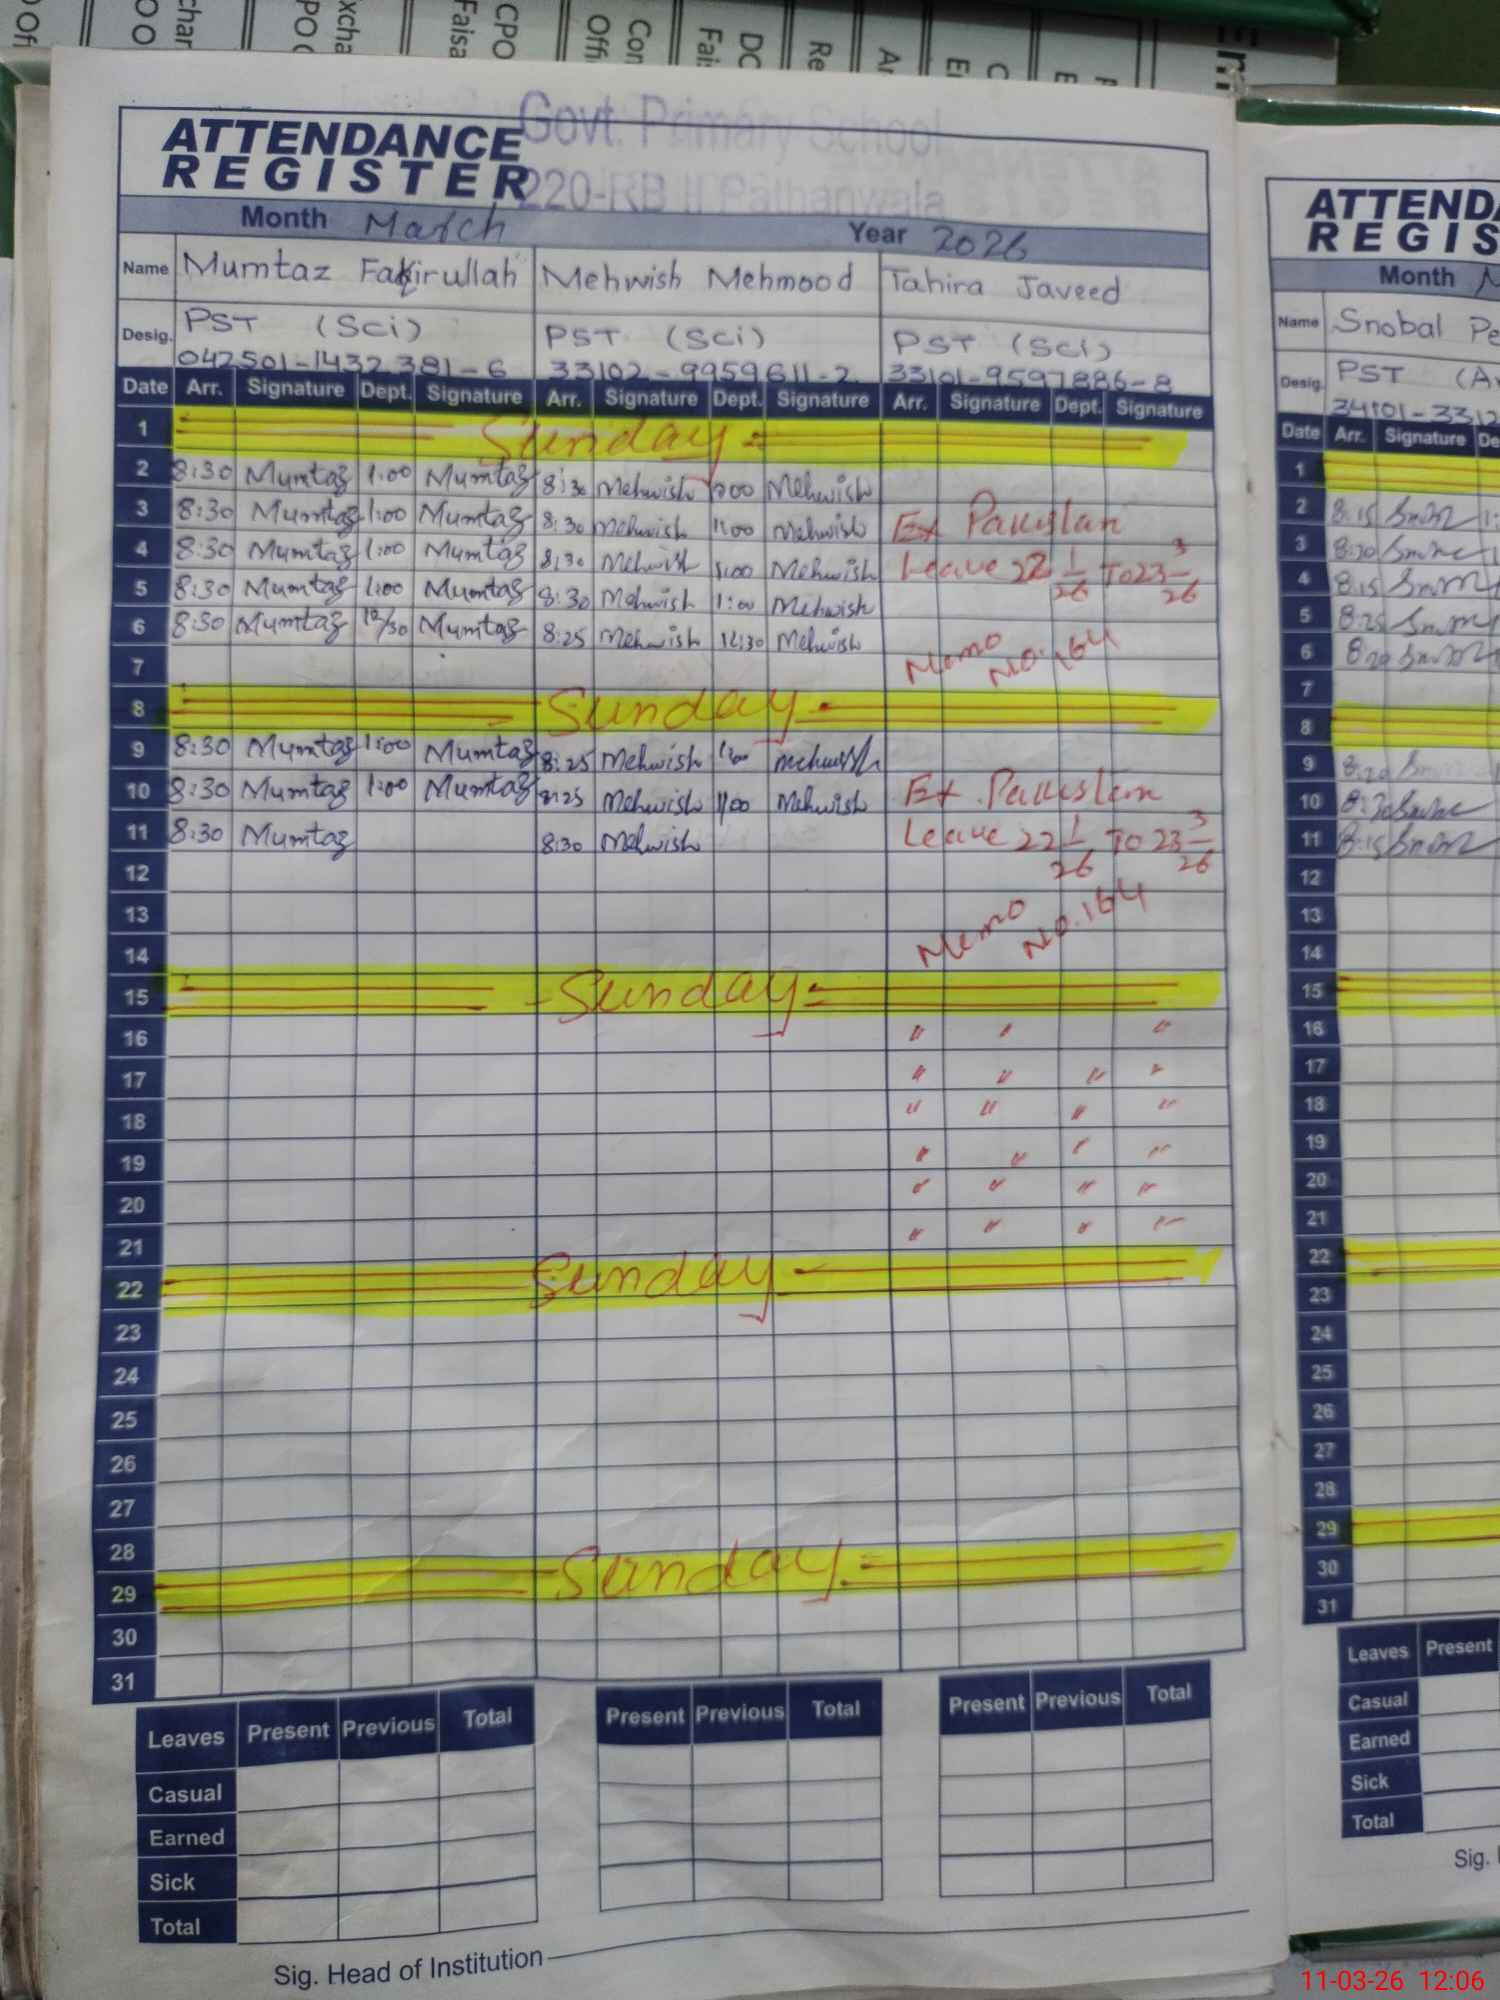 Govt. Primary School
220-RB II Pathanwala
ATTENDANCE
REGISTER
Month March Year 2026
Name Mumtaz Fakirullah Mehwish Mehmood Tahira Javeed
Desig. PST (Sci) PST (Sci) PST (Sci)
042501-1432381-6 33102-9959611-2 33101-9597886-8
Date Arr. Signature Dept. Signature Arr. Signature Dept. Signature Arr. Signature Dept. Signature
1 Sunday
2 8:30 Mumtaz 1:00 Mumtaz 8:30 Mehwish 1:00 Mehwish
3 8:30 Mumtaz 1:00 Mumtaz 8:30 Mehwish 1:00 Mehwish Ex Pakistan
4 8:30 Mumtaz 1:00 Mumtaz 8:30 Mehwish 1:00 Mehwish Leave 22 1/26 To 23 3/26
5 8:30 Mumtaz 1:00 Mumtaz 8:30 Mehwish 1:00 Mehwish
6 8:30 Mumtaz 12/30 Mumtaz 8:25 Mehwish 12:30 Mehwish Memo No. 164
7
8 Sunday
9 8:30 Mumtaz 1:00 Mumtaz 8:25 Mehwish 1:00 Mehwish
10 8:30 Mumtaz 1:00 Mumtaz 8:25 Mehwish 1:00 Mehwish Ex. Pakistan
11 8:30 Mumtaz 8:30 Mehwish Leave 22 1/26 To 23 3/26
12
13 Memo No. 164
14
15 Sunday
16 " " "
17 " " " "
18 " " " "
19 " " " "
20 " " " "
21 " " " "
22 Sunday
23
24
25
26
27
28
29 Sunday
30
31
Leaves Present Previous Total Present Previous Total Present Previous Total
Casual
Earned
Sick
Total
Sig. Head of Institution
ATTENDA
REGIS
Month
Name Snobal
Desig. PST
34101-3312
Date Arr. Signature De
1
2 8:15
3 8:20
4 8:15
5 8:25
6 8:20
7
8
9 8:20
10 8:20
11 8:15
12
13
14
15
16
17
18
19
20
21
22
23
24
25
26
27
28
29
30
31
Leaves Present
Casual
Earned
Sick
Total
Sig.
11-03-26 12:06